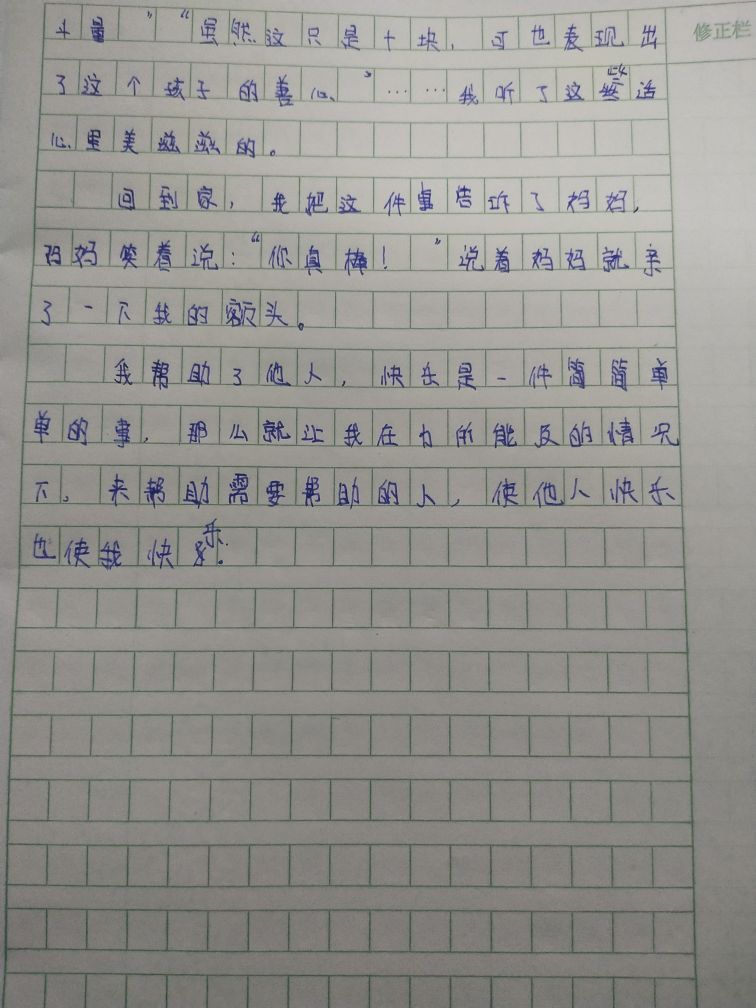 斗量”“虽然这只是十块,可也表现出
修正栏
了这个孩子的善心、”……我听了这些话
心里美滋滋的。
回到家,我把这件事告诉了妈妈,
妈妈笑着说:“你真棒!”说着妈妈就亲
了一下我的额头。
我帮助了他人,快乐是一件简简单
单的事,那么就让我在力所能及的情况
下,来帮助需要帮助的人,使他人快乐
也使我快乐.